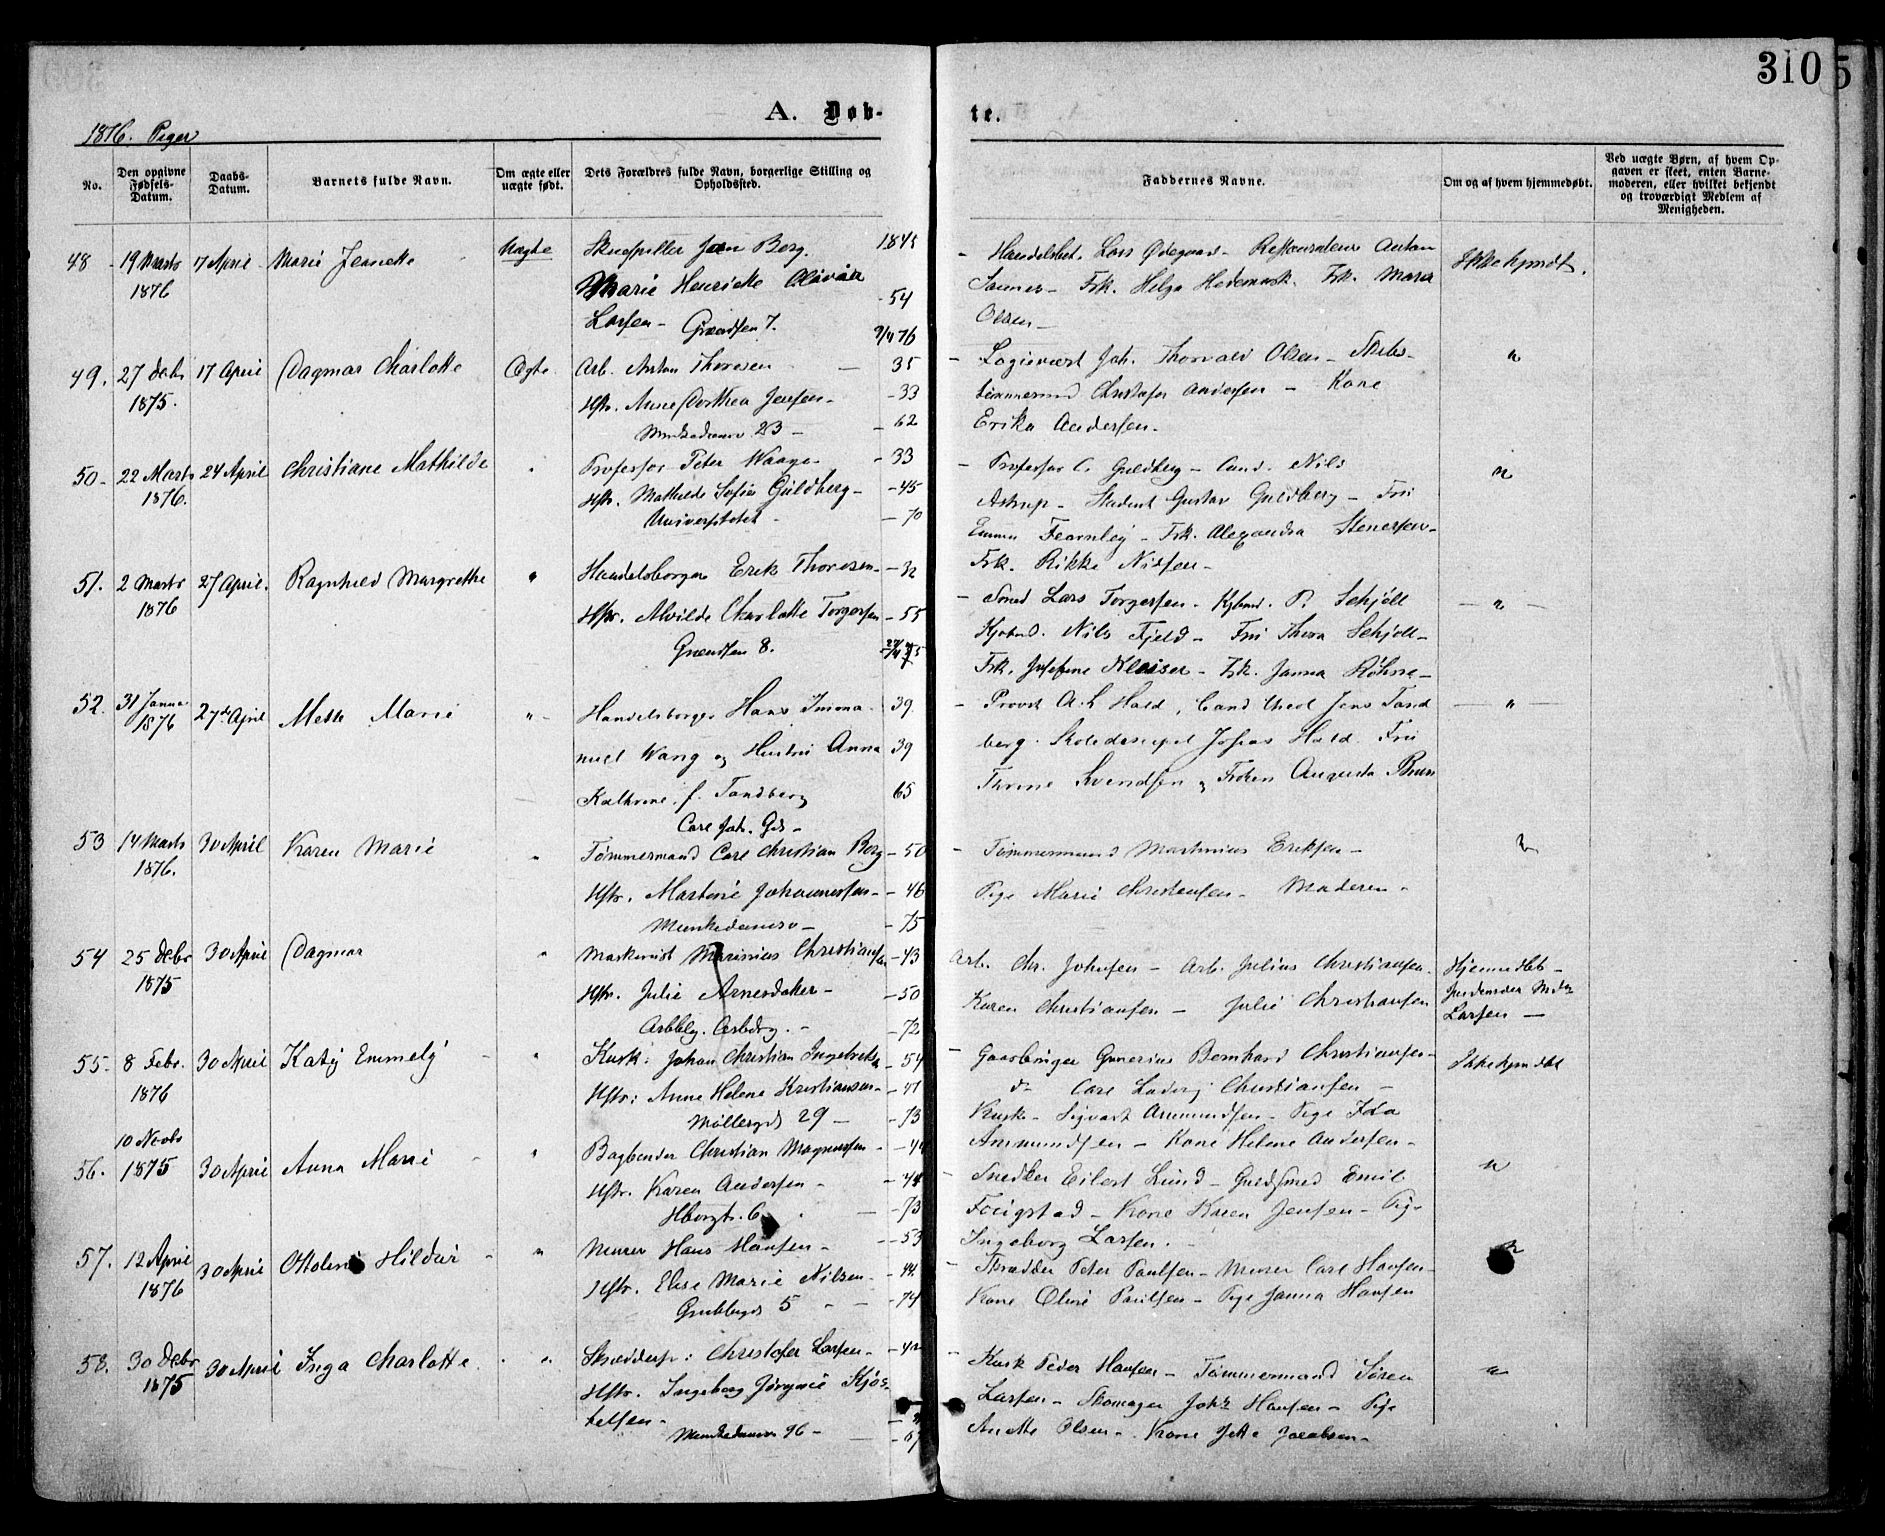 310
5
A. Døb-
te.
1876. Piger
No.
Den opgivne Fødsels-Datum.
Daabs-Datum.
Barnets fulde Navn.
Om ægte eller uægte født.
Dets Forældres fulde Navn, borgerlige Stilling og Opholdssted.
Faddernes Navne.
Om og af hvem hjemmedøbt.
Ved uægte Børn, af hvem Opgaven er skeet, enten Barnemoderen, eller hvilket bekjendt og troværdigt Medlem af Menigheden.
48 19 Marts 17 April Marie Jeanette Uægte Skuespiller Berg. 1845
1876 Marie Henriette Olivia -54
Larsen - Grændsen 7. 9/4 76
- Handelsbet. Lars Ødegaard - Restauratør Anton
Frk. Helga Hedemark. Frk. Maria
Olsen -
49. 27 Debr 17 April Dagmar Charlotte Ægte Arb. Anton Thoresen - 35
1875. Hstr. Anne Dorthea Jensen - 33
Munkedamsv 23 - 62
- Logivært Joh. Thorvald Olsen - Skibs-
tømmermand Christofer Andersen - Kone
Erika Andersen.
50 - 22 Marts 24 April Christiane Mathilde " Professor Peter Waage - 33
1876. Hstr. Mathilde Sofie Guldberg - 45
Universitetet - 70
- Professor C. Guldberg - Cand. Nils
Astrup - Student Gustav Guldberg - Fru
Emma Fearnley - Frk. Alexandra Stenersen -
Frk. Rikke Nilsen -
51. 2 Marts 27 April. Ragnhild Margrethe " Handelsborger Erik Thoresen - 32
1876 Hstr. Alvilde Charlotte Torgersen - 55
Grændsen 8.
- Smed Lars Torgersen - Kjbmd. P. Schjøll - " -
Kjøbmd. Nils Fjeld - Fru Thora Schjøll -
Frk. Josefine - Frk. Janna
52. 31 Janua 27de April Mette Marie " Handelsborger Hans Imma- 39
1876 nuel Wang og Hustru Anna 39
Kathrine f. Tandberg 65
Carl Joh. Gd -
- Provst A. L Hald, Cand theol Jens Tand
berg. Skoledisipel Josias Hald Fru
Thrine Svendsen og Frøken Augusta
53 14 Marts 30 April Karen Marie " Tømmermand Carl Christian Berg - 50
1876. Hstr. Martine Johannessen - 46
Munkedamsv - 75
- Tømmermand Martinius Eriksen -
Pige Marie Christensen - Moderen -
54 25 Debr 30 April Dagmar " Maskinist Marinius Christiansen - 43
1875 Hstr. Julie Arnesdatter - 50
- 72
Arb. Chr. Johnsen - Arb. Julius Christiansen. Hjemmedbt -
Karen Christiansen - Julie Christiansen Jordemoder
Larsen -
55 - 8 Febr. 30 April Katy Emmely - " Kusk: Johan Christian - 54
1876 Hstr: Anne Helene Kristiansen - 41
Møllergd 29 - 73
- Gaardbruger Gunerius Bernhard Christiansen - Ikke hjemdbt
do Carl Ludvig Christiansen -
Kusk - Sigvart Ammundsen - Pige Ida
Ammundsen - Kone Helene Andersen -
56. 10 Novbr 1875 30 April Anna Marie - " Bogbinder Christian Magnussen
Hstr. Karen Andersen - 44
6 - 73
- Snedker Eilert Lund - Guldsmed Emil "
- Kone Karen Jensen - Pige
Ingeborg Larsen. -
57. 12 April 30 April Ottoline Hildur - " Murer Hans Hansen - 53
1876 Hstr. Elise Marie Nilsen - 44
Grubbegd 5 - 74
- Skrædder Peter Paulsen - Murer Carl Hansen - "
Kone Oline Paulsen - Pige Janna Hansen
58. 30 Debr 30 April Inga Charlotte. " Skræddersv: Christofer Larsen -
1875 Hstr. Ingeborg Jørgine Kjøs-
telsen -
Munkedamsv 96 - 67
- Kusk Peder Hansen - Tømmermand Søren "
Larsen - Skomager Johs Hansen - Pige
Anette Olsen - Kone Jette Jacobsen -